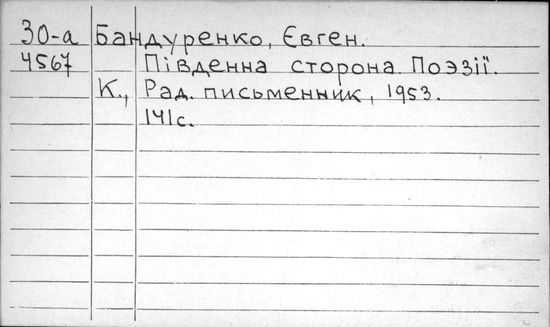 30-а Бандуренко, Євген.
4567 Південна сторона. Поэзії.
К., Рад. письменник, 1953.
141с.